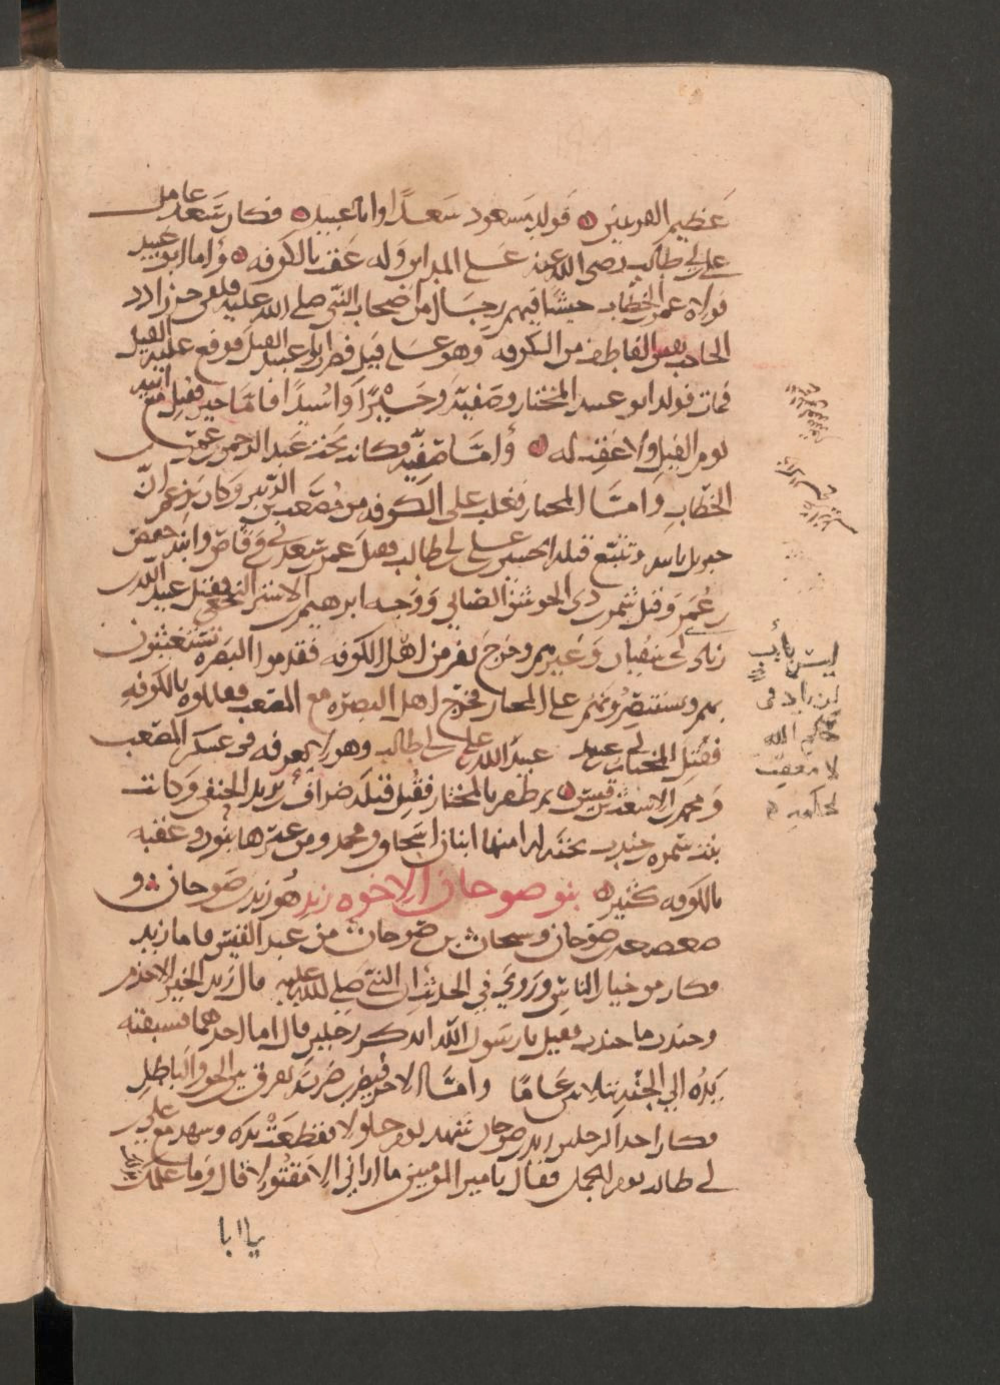 عظيم القريتين فولد مسعود سعدًا وابا عبيد فكان سعد عامل
علي بن ابي طالب رضي الله عنه على المداين وله عقب بالكوفه واما ابو عبيد
فولاه عمر بن الخطاب جيشًا فيهم رجال من اصحاب النبي صلى الله عليه فلقي خرزادد
الحاجب بقس الناطف من الكوفه وهو على فيل فضرب ابو عبيد الفيل فوقع عليه الفيل
فمات فولد ابو عبيد المختار وصفيّة وجبْرًا واسيدًا فاما جبر فقتل مع ابيه
يوم الفيل ولا عقب له وأمّا صفيّه فكانت تحت عبد الله بن عمر بن
الخطاب وامّا المختار فغلب على الكوفه من مُصْعَب بن الزبير وكان يزعم ان
جبريل ياتيه وتتبّع قتله الحسين بن علي بن ابي طالب فقتل عمر بن سعد بن ابي وقاص وابنه حفص
بن عُمَر وقتل شمر بن ذي الجوشن الضبابي ووجه ابرهيم بن الاشتر النخعي فقتل عبيد الله بن
زياد بن ابي سفيان وغيرهم وخرج نفر من اهل الكوفه فقدموا البصره يستغيثون
بهم ويستنصرونهم على المختار فخرج اهل البصره مع المصعب فقاتلوه بالكوفه
فقُتِل المختار بن ابي عبيد عبيد الله بن علي بن ابي طالب وهو لا يعرفه في عسكر المصعب
ومحمد بن الاشعث بن قيس ثم ظفر بالمختار فقُتِل قتله صراف بن يزيد الحنفي وكانت
بنت سمره بن جندب تحته له منها ابنان اسحاق ومحمد ومن غيرها بنون وعقبه
بالكوفه كثير بنو صوحان الاخوه زيد هو زيد بن صوحان و
صعصعه بن صوحان وسيحان بن صوحان من عبد القيس فاما زيد
فكان من خيار الناس ورَوي في الحديث ان النبي صلى الله عليه قال زيد الخير الاجذم
وجندب ما جندب فقيل يا رسول الله اتذكر رجلين قال اما احدهما فسبقته
يَدُه الي الجنّه بثلاثين عَامًا وأمّا الاخر فيضرب ضربة يفرق بين الحق والباطل
فكان احد الرجلين زيد بن صوحان شهد يوم جلولا فقطعت يده وشهد مع علي بن
ابي طالب يوم الجمل فقال يا امير المومنين ما اراني الا مقتولا قال وما علمك
يا ابا
لا معقب
لحكمه